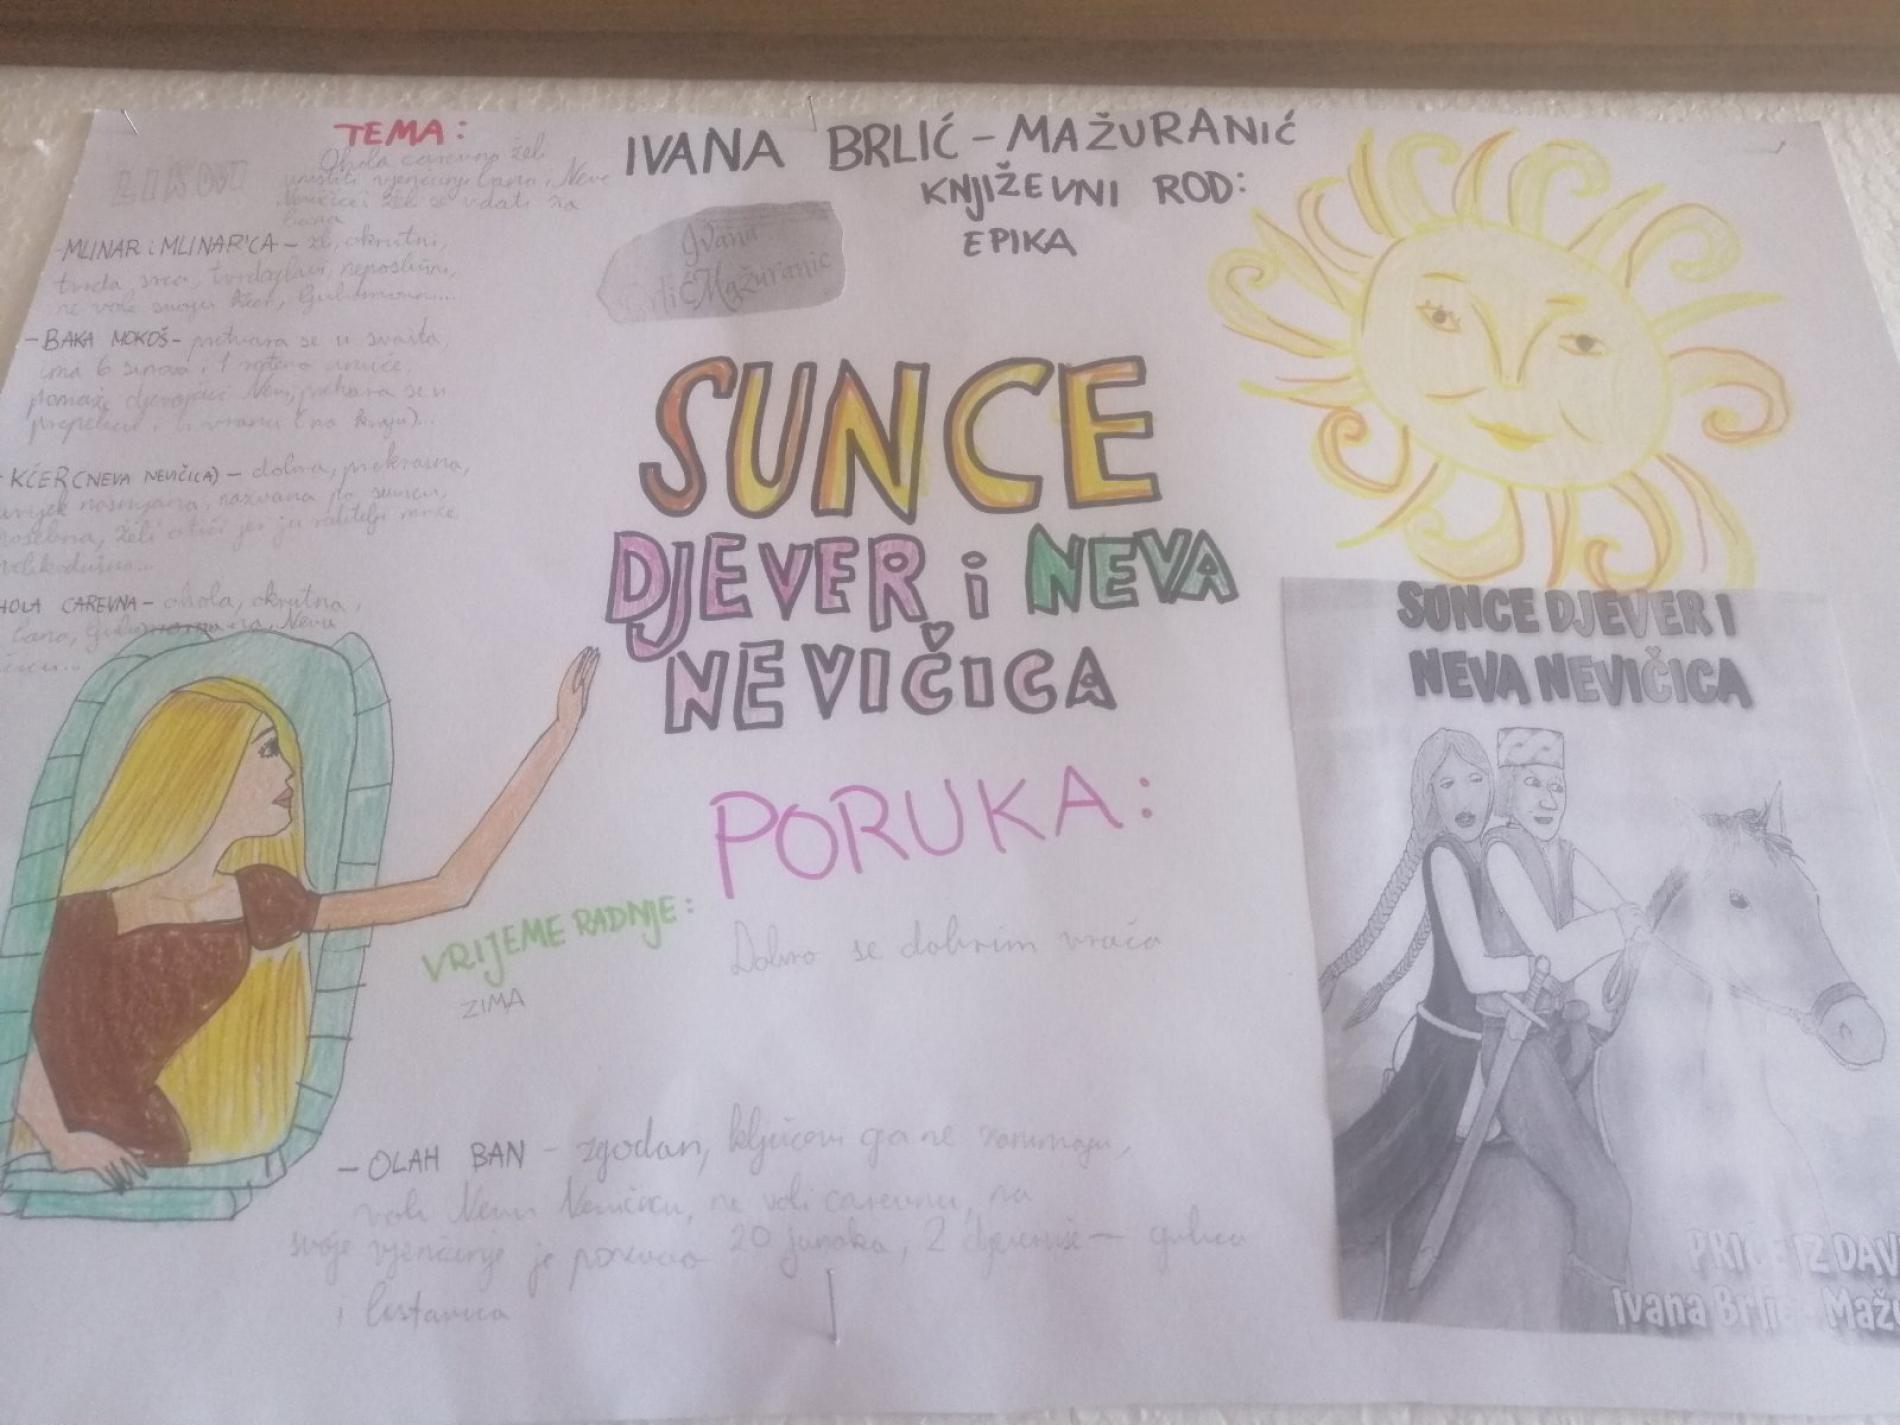 TEMA:
Ohola carevna želi
uništiti vjenčanje bana i Neve
Nevičice i želi se udati za
bana
LIKOVI
-MLINAR i MLINARICA - zli, okrutni,
tvrda srca, tvrdoglavi, neposlušni,
ne vole svoju kćer,
-BAKA MOKOŠ- pretvara se u svašta,
ima 6 sinova i 1
pomaže djevojčici Nevi, pretvara se u
prepelicu i u vranu (na kraju)...
- KĆER (NEVA NEVIČICA) - dobra, prekrasna,
uvijek nasmijana, nazvana po suncu,
posebna, želi otići jer ju roditelji mrze,
velikodušna...
OHOLA CAREVNA - ohola, okrutna,
IVANA BRLIĆ-MAŽURANIĆ
KNJIŽEVNI ROD:
EPIKA
Ivana
Brlić Mažuranić
SUNCE
DJEVER i NEVA
NEVIČICA
PORUKA:
Dobro se dobrim vraća
VRIJEME RADNJE:
ZIMA
- OLAH BAN - zgodan, ključevi ga ne zanimaju,
voli Nevu Nevičicu, ne voli carevnu, na
svoje vjenčanje je pozvao 20 junaka, 2 djeveruše -
i lastavica
SUNCE DJEVER I
NEVA NEVIČICA
PRIČE IZ DAV
Ivana Brlić - Mažu